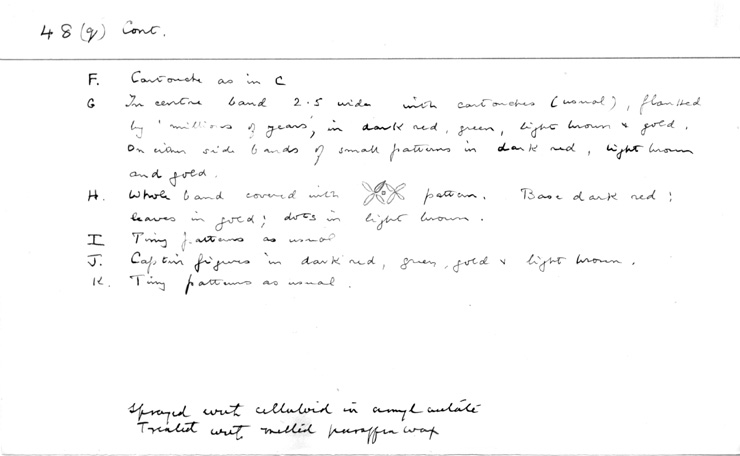 48(q) Cont.
F. Cartouche as in C
G In centre band 2.5 wide with cartouches (usual), flanked
by 'millions of years', in dark red, green, light brown & gold.
On either side bands of small patterns in dark red, light brown
and gold.
H. Whole band covered with pattern. Base dark red;
leaves in gold; dots in light brown.
I Tiny patterns as usual
J. Captive figures in dark red, green, gold & light brown.
K. Tiny patterns as usual.
Sprayed with celluloid in amyl acetate
Treated with melted paraffin wax